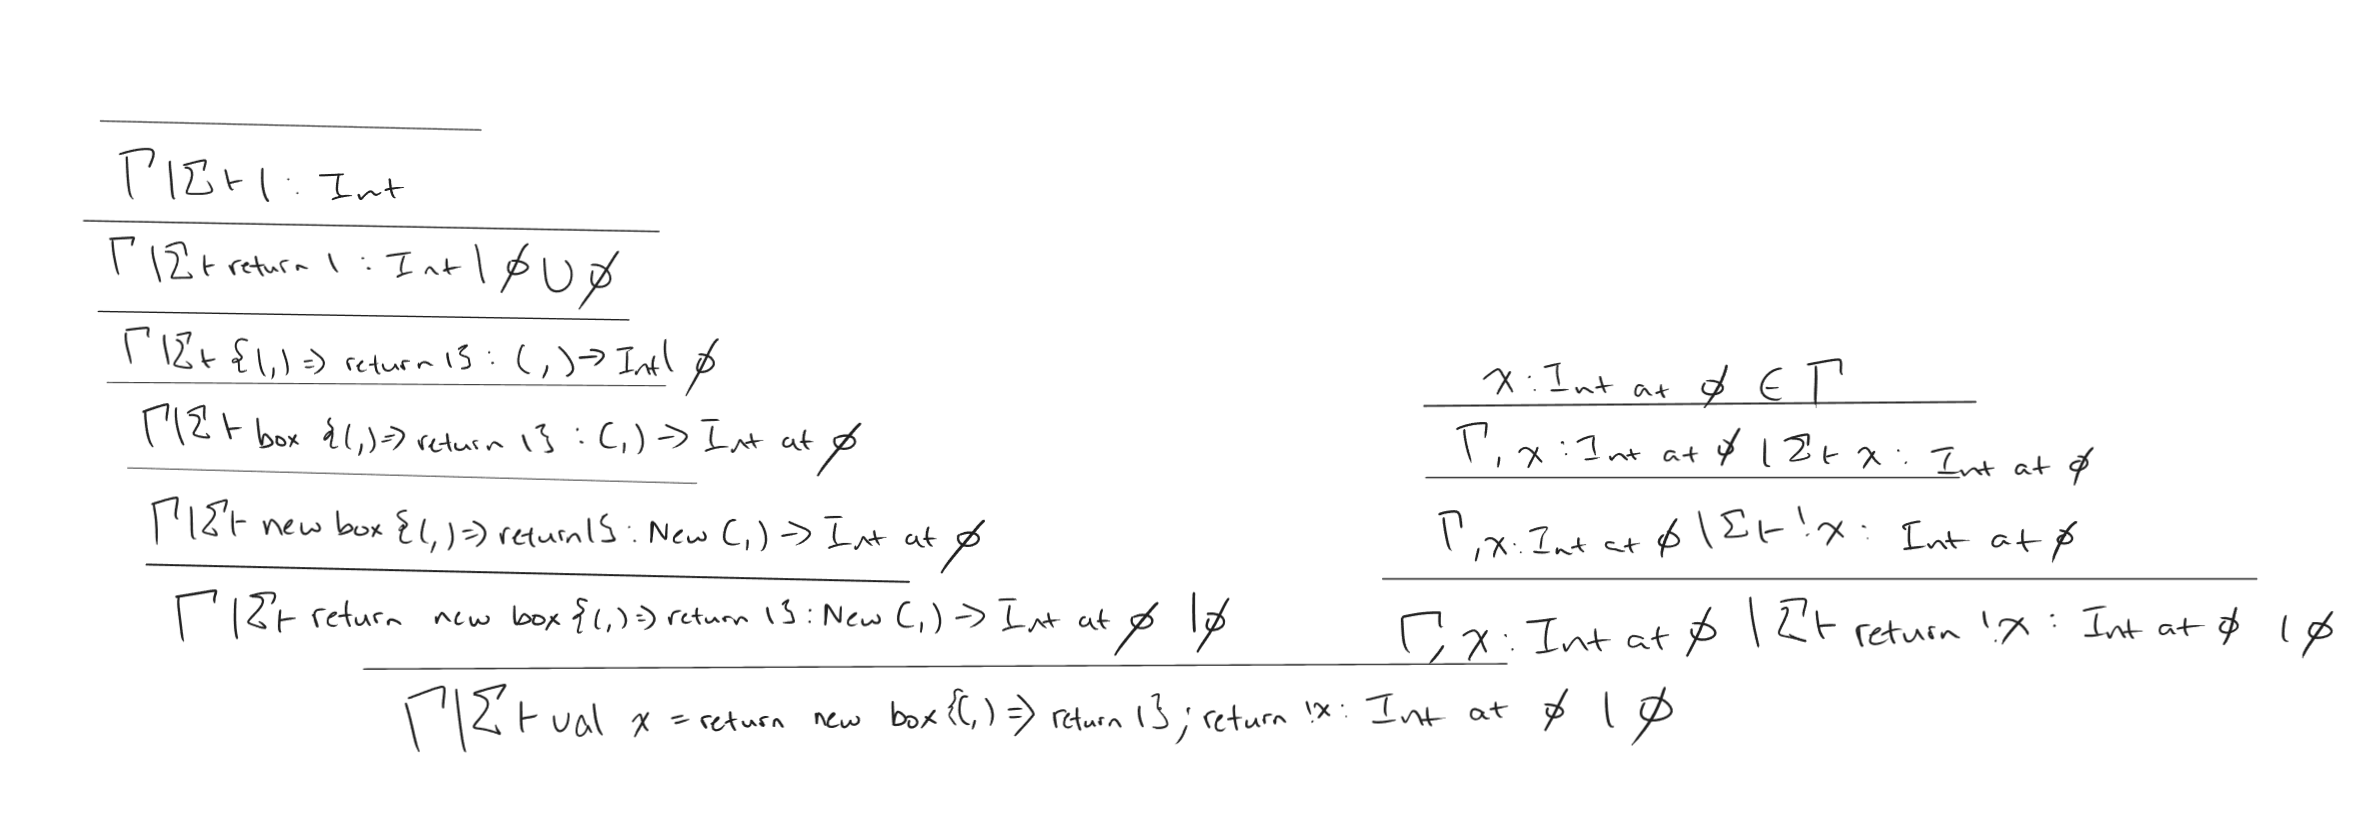 Γ|Σ⊢1 : Int
Γ|Σ⊢ return 1 : Int | ∅ ∪ ∅
Γ|Σ⊢ {(,) ⇒ return 1} : (,) → Int | ∅
Γ|Σ⊢ box {(,) ⇒ return 1} : (,) → Int at ∅
Γ|Σ⊢ new box {(,) ⇒ return 1} : New (,) → Int at ∅
Γ|Σ⊢ return new box {(,) ⇒ return 1} : New (,) → Int at ∅ | ∅
x : Int at ∅ ∈ Γ
Γ, x : Int at ∅ | Σ⊢ x : Int at ∅
Γ, x : Int at ∅ | Σ⊢ !x : Int at ∅
Γ, x : Int at ∅ | Σ⊢ return !x : Int at ∅ | ∅
Γ|Σ⊢ val x = return new box {(,) ⇒ return 1} ; return !x : Int at ∅ | ∅